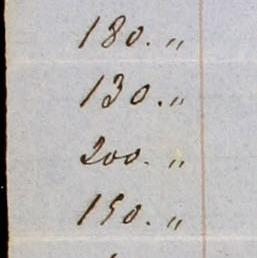 180. "
130. "
200. "
150. "